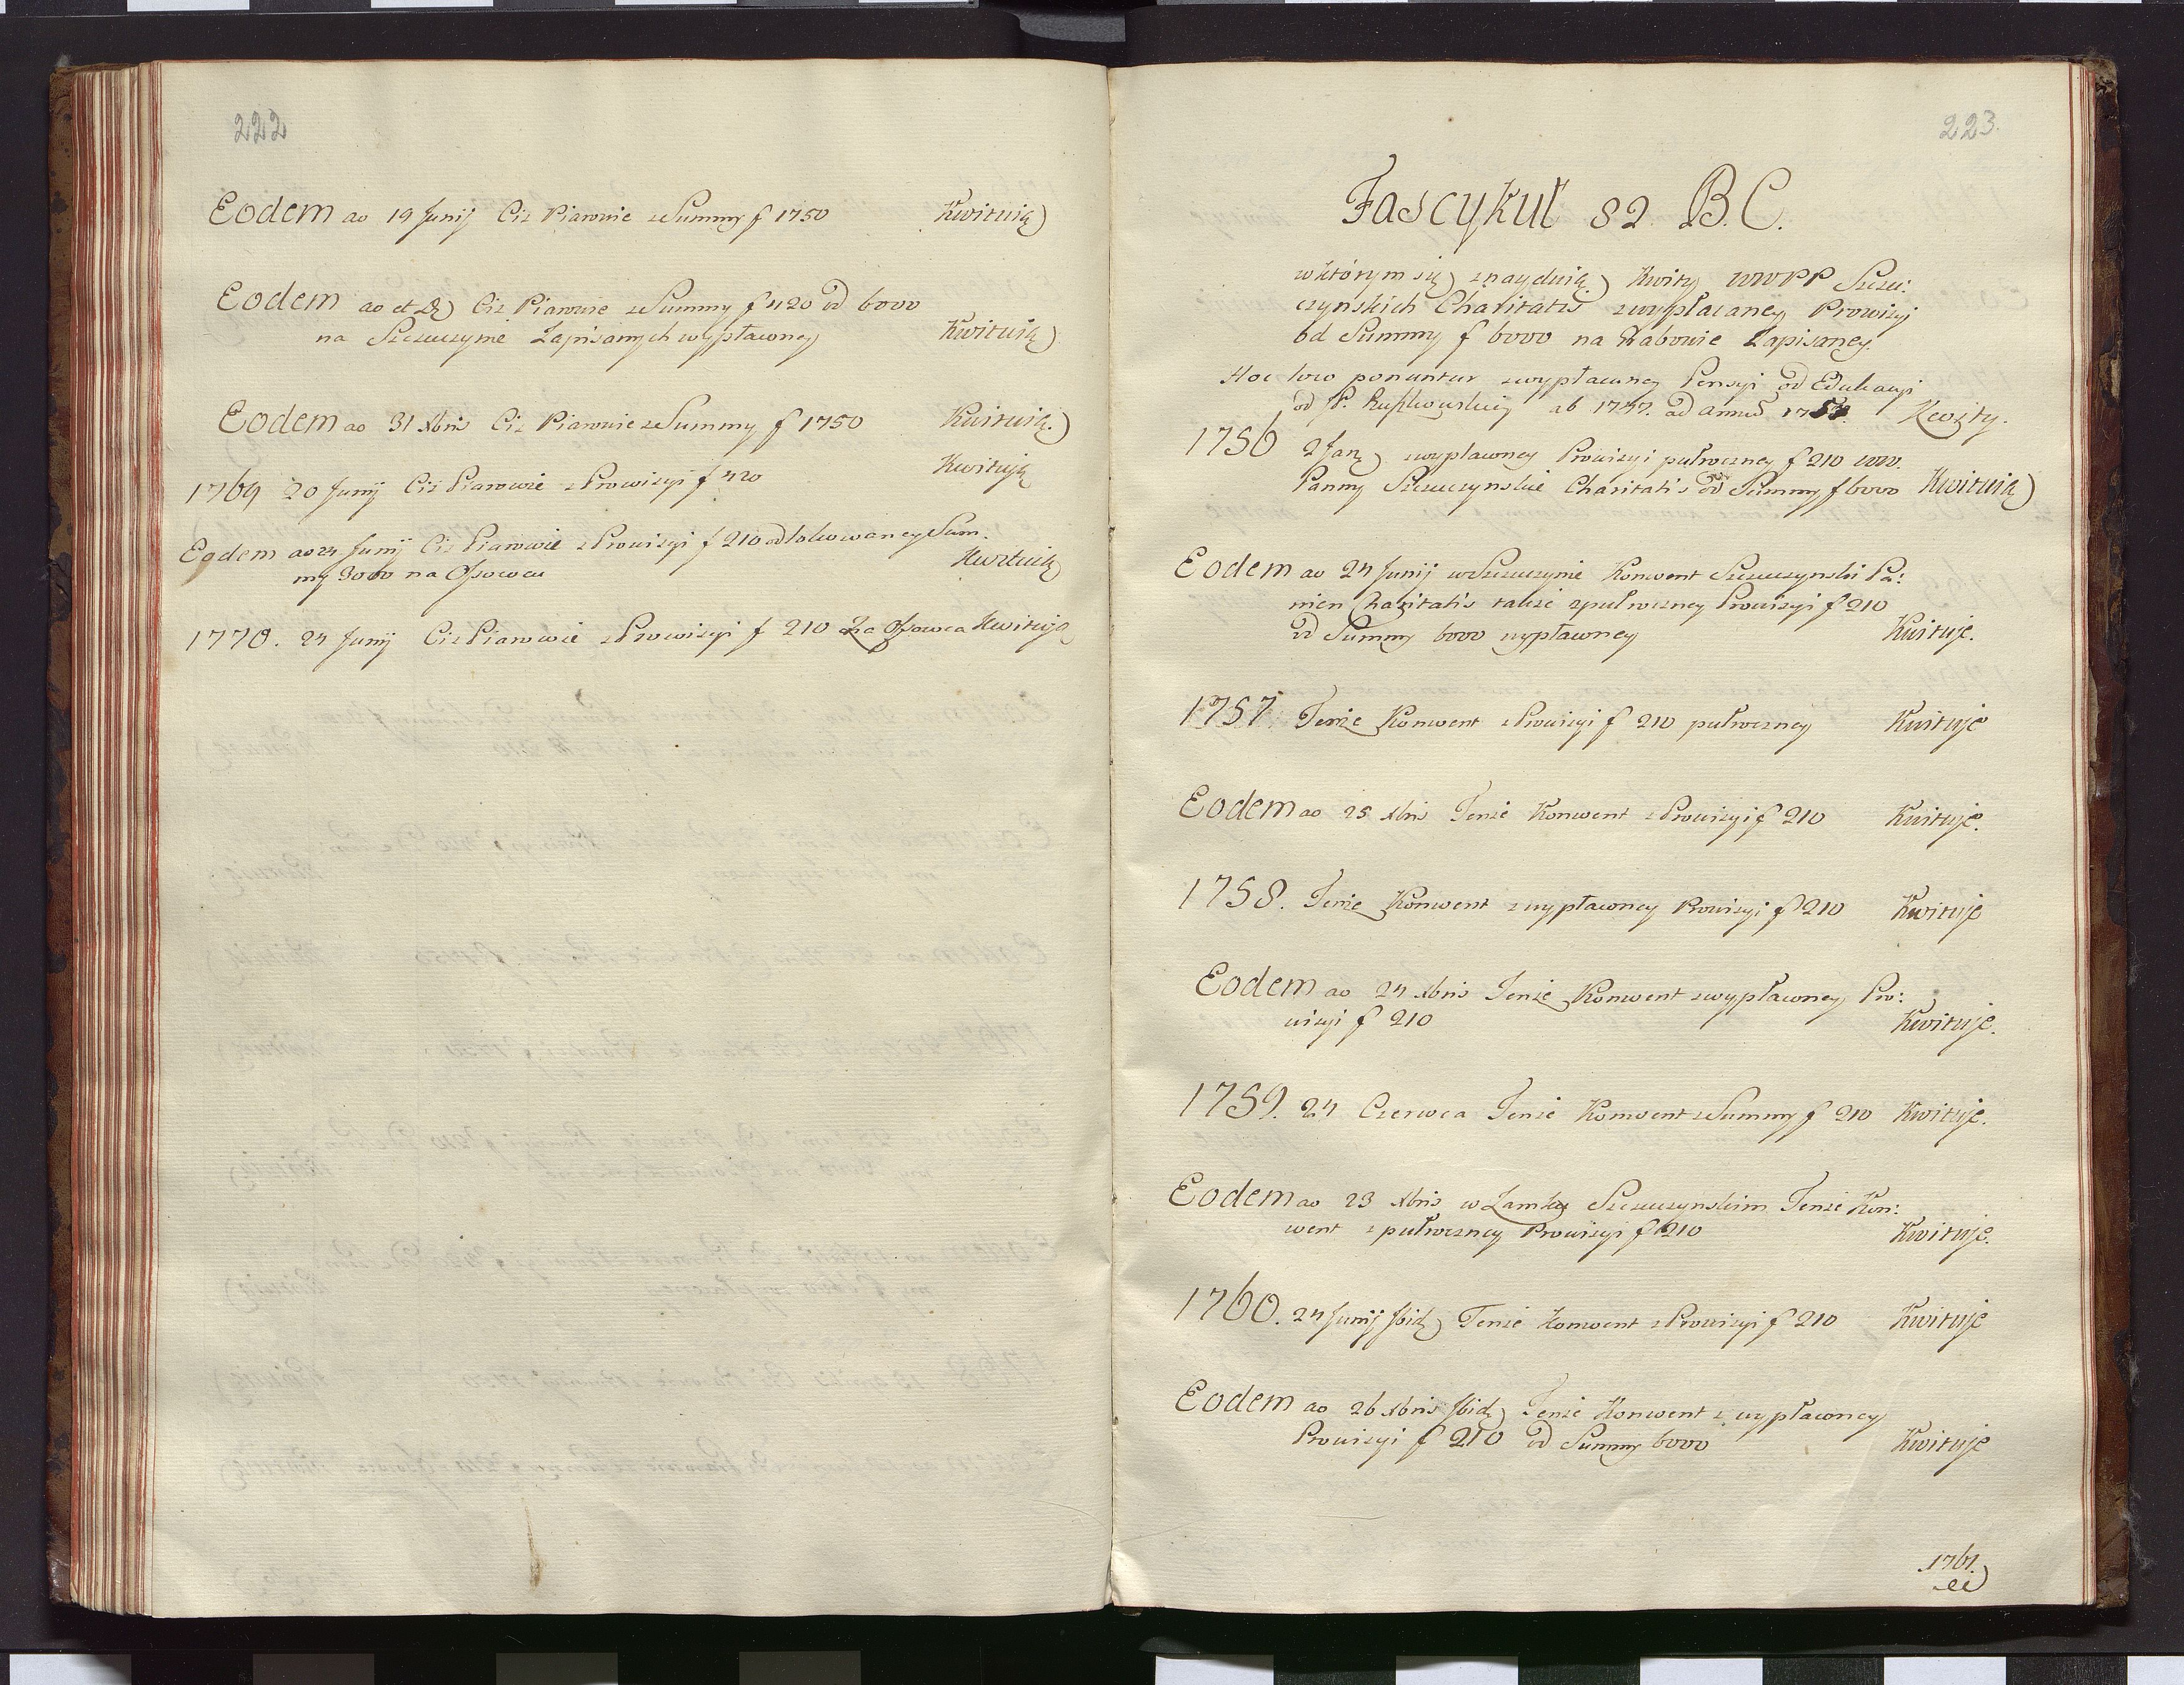 222
Eodem ao 19 Junij Ciż Piarowie z Summy f 1750 Kwituią
Eodem ao et die Ciż Piarowie z Summy f 420 od 6000
na Szczuczynie Zapisanych wypłaconey Kwituią
Eodem ao 31 Xbris Ciż Piarowie z Summy f 1750 Kwituią.
1769 20 Junij Ciż Piarowie z Prowizyi f 420 Kwituią
Eodem ao 24 Junij Ciż Piarowie z Prowizyi f 210 od lokowaney Sum.
my 3000 na Ossowcu Kwituią
1770. 24 Junij Ciż Piarowie z Prowizyi f 210 Ossowca Kwituią
223.
Fascykuł 82 B.C.
w którym się znayduią Kwity WWPP Szczu:
czynskich Charitatis z wypłacaney Prowizyi
od Summy f 6000 na Wabowie Zapisaney.
Hoc loco ponuntur z wypłaconey Pensyi od Edukacyi
od JP. ab 1747. ad annum Kwity.
1756 2 Jan z wypłaconey Prowizyi pułroczney f 210 WW.
Panny Szczuczynskie Charitatis od Summy f 6000 Kwituią
Eodem ao 24 Junij w Szczuczynie Konwent Szczuczynski Pa:
nien Charitatis także z pułroczney Prowizyi f 210
od Summy 6000 wypłaconey Kwituje.
1757. Tenże Konwent z Prowizyi f 210 pułroczney Kwituje
Eodem ao 25 Xbris Tenże Konwent z Prowizyi f 210 Kwituje.
1758. Tenże Konwent z wypłaconey Prowizyi f 210 Kwituje
Eodem ao 24 Xbris Tenże Konwent z wypłaconey Pro:
wizyi f 210 Kwituje.
1759. 24 Czerwca Tenże Konwent z Summy f 210 Kwituje.
Eodem ao 23 Xbris w Zamku Szczuczynskim Tenże Kon:
went z pułroczney Prowizyi f 210 Kwituje.
1760. 24 Junij Ibid Tenże Konwent z Prowizyi f 210 Kwituje
Eodem ao 26 Xbris Ibid Tenże Konwent z wypłaconey
Prowizyi f 210 od Summy 6000 Kwituje
1761.